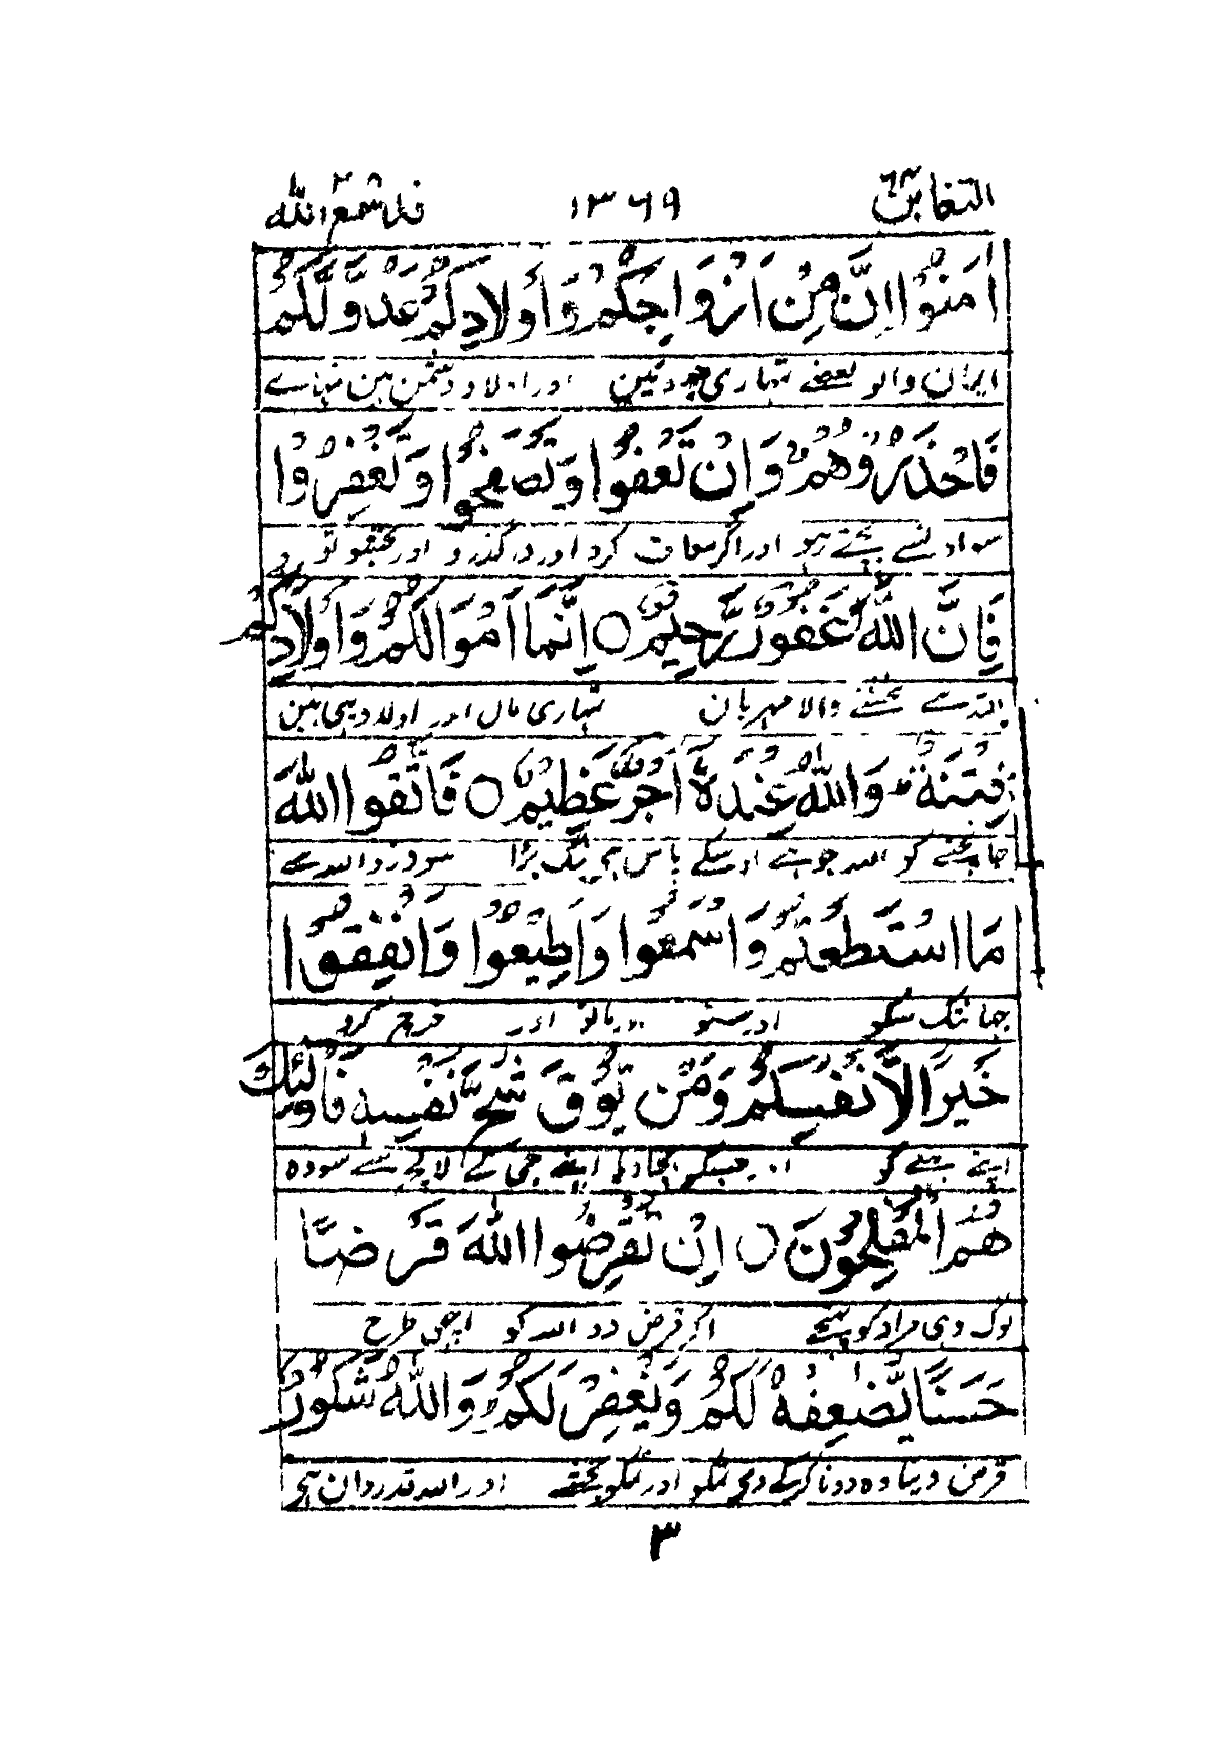 التغابن ٦٤ ١٣٦٩ قد سمع الله ٢٨
اٰمَنُوْٓا اِنَّ مِنْ اَزْوَاجِكُمْ وَاَوْلَادِكُمْ عَدُوًّا لَّكُمْ
ایمان والو بعضے تمہاری جوروئین اور اولاد دشمن ہین تمہارے
فَاحْذَرُوْهُمْ ۚ وَاِنْ تَعْفُوْا وَتَصْفَحُوْا وَتَغْفِرُوْا
سو اونسے بچتے رہو اور اگر معاف کرو اور درگذرو اور بخشو تو
فَاِنَّ اللّٰهَ غَفُوْرٌ رَّحِيْمٌ ○ اِنَّمَآ اَمْوَالُكُمْ وَاَوْلَادُكُمْ
اللہ ہے بخشنے والا مہربان تمہاری مال اور اولاد یہی ہین
فِتْنَةٌ ۭ وَاللّٰهُ عِنْدَهٗٓ اَجْرٌ عَظِيْمٌ ○ فَاتَّقُوا اللّٰهَ
جانچنے کو اللہ جو ہے اوسکے پاس ہی نیگ بڑا سو ڈرو اللہ سے
مَا اسْتَطَعْتُمْ وَاسْمَعُوْا وَاَطِيْعُوْا وَاَنْفِقُوْا
جہانتک سکو اور سنو اور مانو اور خرچ کرو
خَيْرًا لِّاَنْفُسِكُمْ ۭ وَمَنْ يُّوْقَ شُحَّ نَفْسِهٖ فَاُولٰۗئِكَ
اپنے بھلے کو اور جسکو بچادیا اپنے جی کے لالچ سے سو وہ
هُمُ الْمُفْلِحُوْنَ ○ اِنْ تُقْرِضُوا اللّٰهَ قَرْضًا
لوگ وہی مراد کو پہنچے اگر قرض دو اللہ کو اچھی طرح
حَسَنًا يُّضٰعِفْهُ لَكُمْ وَيَغْفِرْ لَكُمْ ۭ وَاللّٰهُ شَكُوْرٌ
قرض دینا وہ دونا کرکے دی تمکو اور تمکو بخشے اور اللہ قدردان ہی
٣